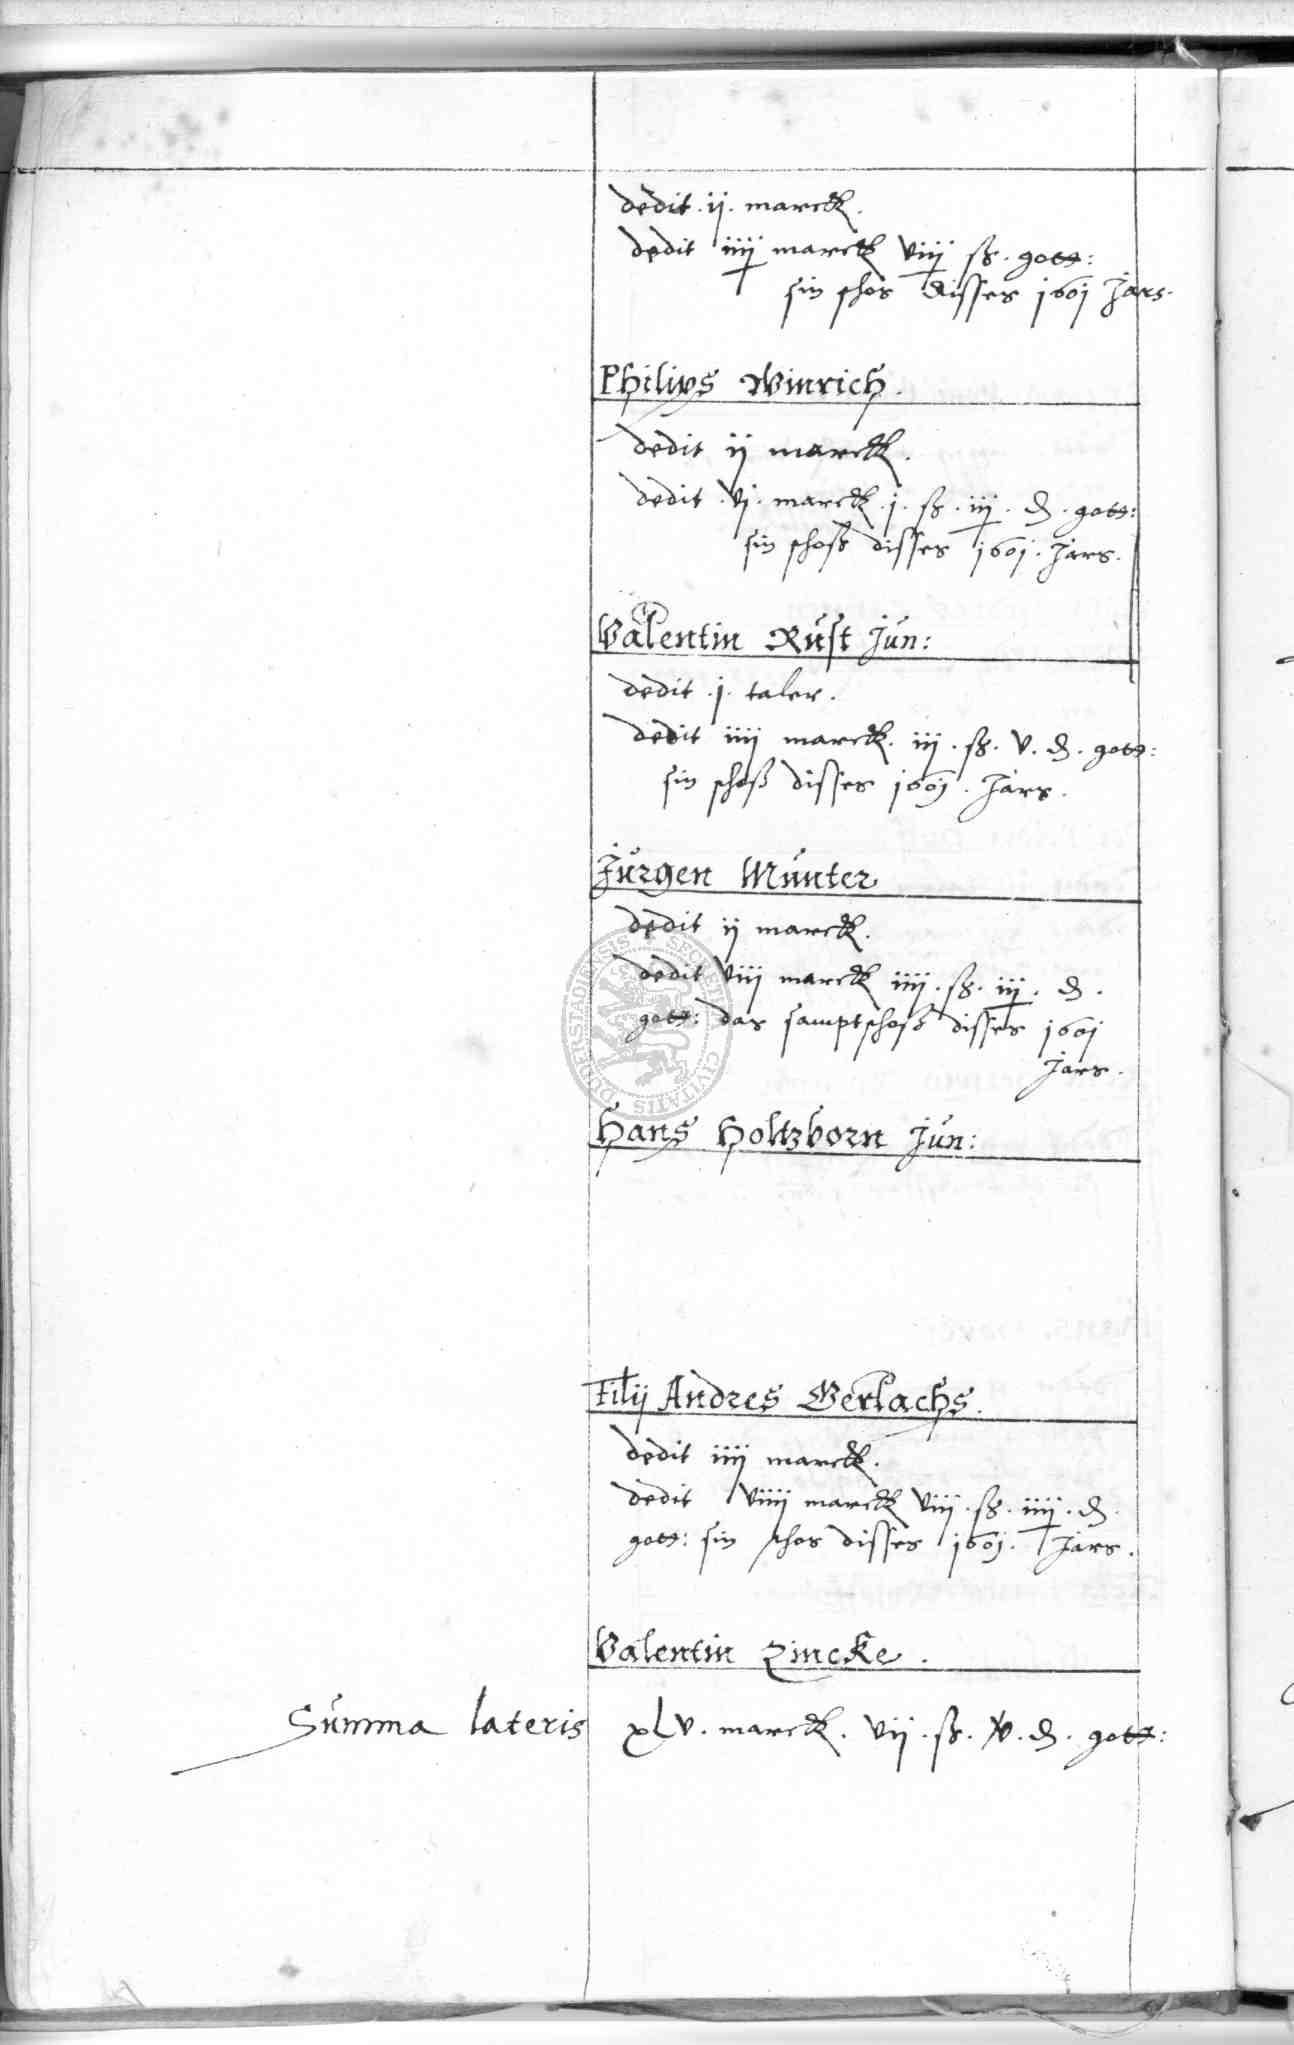 dedit . ij . marck .
dedit iiij marck viij ß . gott:
sin schos disses 1601 Jars .
Philips Winrich .
dedit ij marck .
dedit . vj . marck . j . ß . iij . d . gott:
sin schoß disses 1601 . Jars .
Valentin Rust Jun:
dedit . j . taler .
dedit iiij marck . iij . ß . v . d . gott:
sin schoß disses 1601 . Jars .
Jurgen Munter
dedit ij marck .
dedit viij marck iiij . ß . iij . d .
gott: das samptschoß disses 1601
Jars .
Hans Holtzborn Jun:
Filij Andres Gerlachs .
dedit iiij marck .
dedit viiij marck viij . ß . iiij . d .
gott: sin schos disses 1601 . Jars .
Valentin Zincke .
Summa lateris xlv . marck . vij . ß . v . d . gott:
SECRETUM CIVITATIS DUDERSTADIENSIS